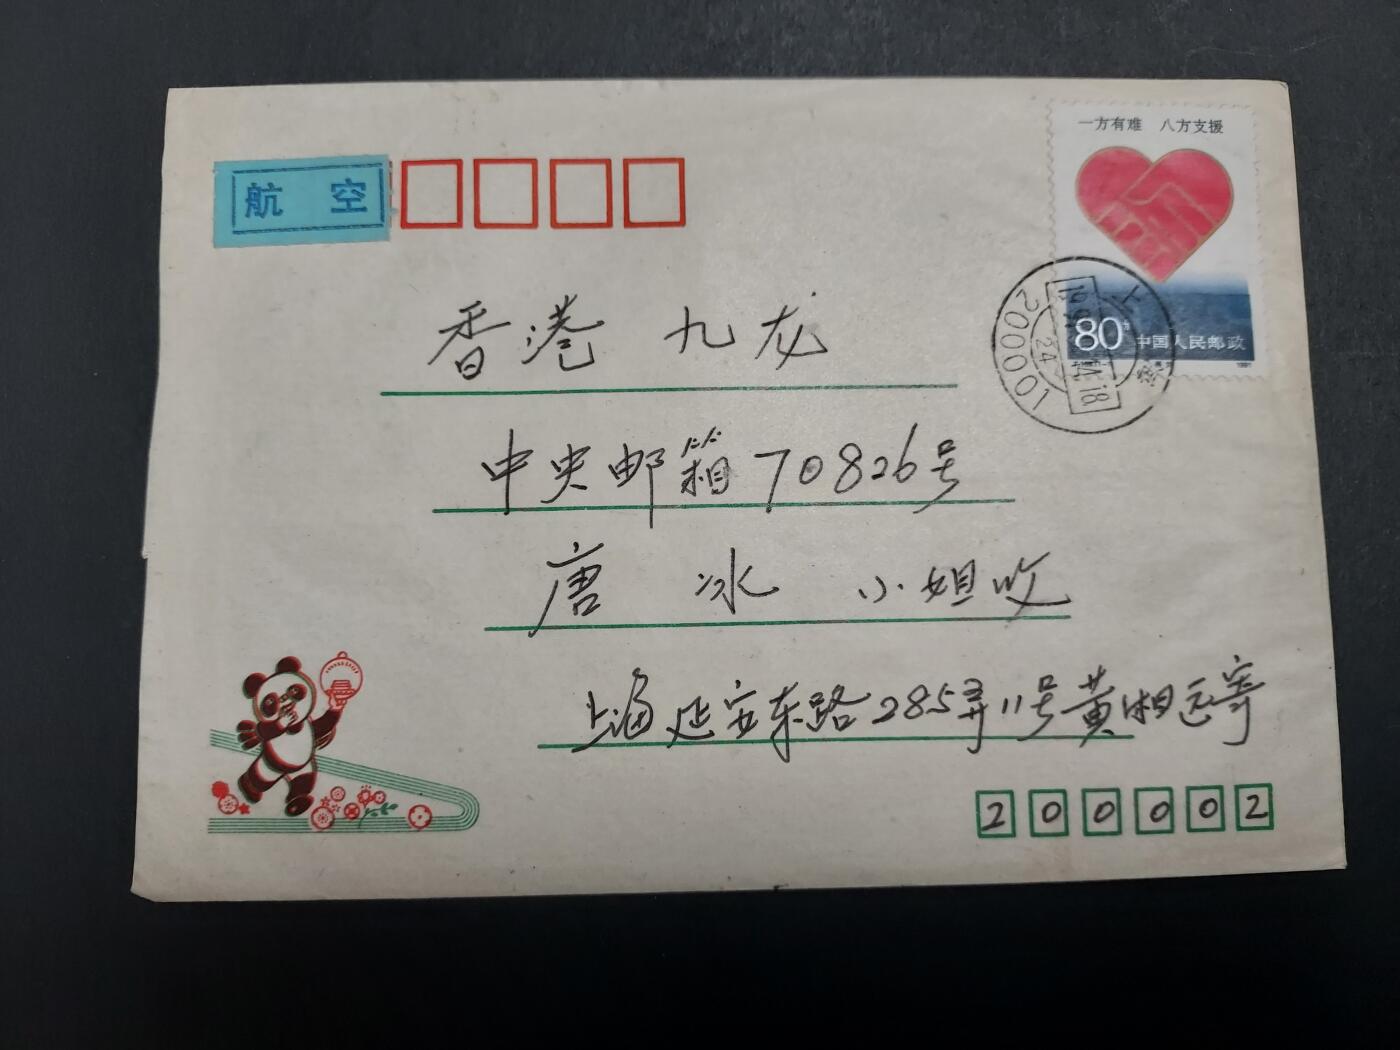 一方有难 八方支援
航 空
80分 中国人民邮政
1991
200001
香港 九龙
中央邮箱70826号
唐 冰 小姐收
上海延安东路285弄11号黄湘远寄
200002